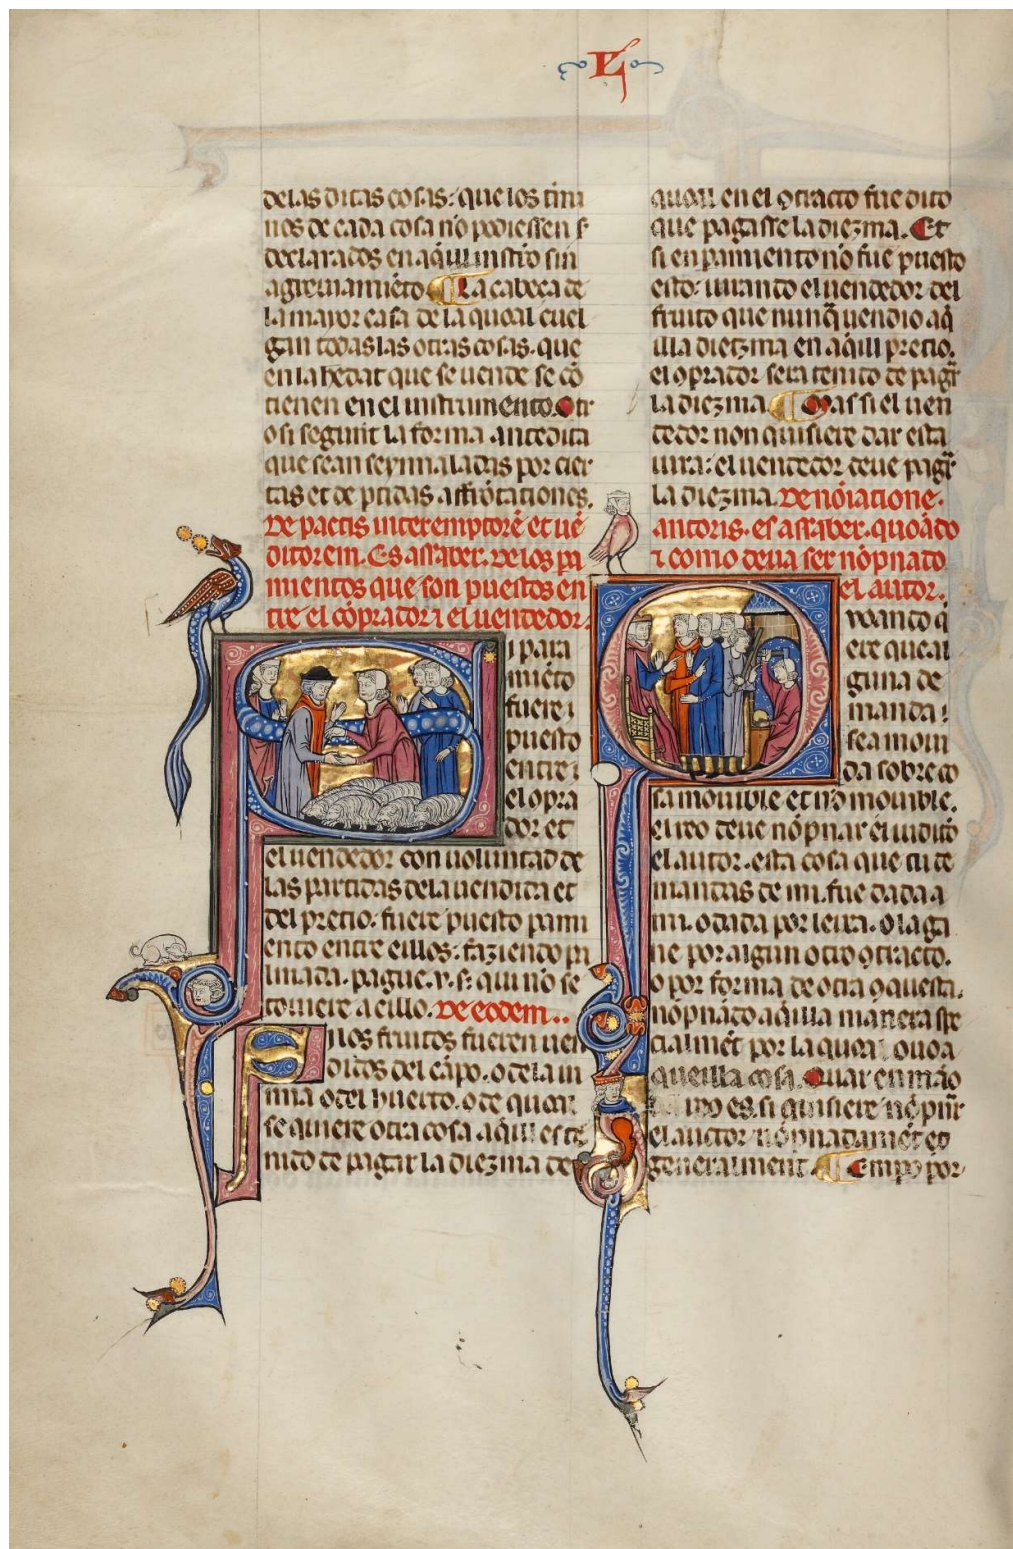 L
delas ditas cosas: que los timi
nos de cada cosa nõ podiessen s
declarados en aq̃ill instr̃o sin
agreuiamiẽto ¶ La cabeça de
la mayor casa de la quoal cuel
gan todas las otras cosas. que
en la hedat que se uende se cõ
tienen en el instrumento. Otr
osi segunt la forma antedita
que sean seynnaladas por cier
tas et departidas affrõtationes.
De pactis inter emptorẽ et uẽ
ditorem. Es assaber. de los pa
mientos que son puestos en
tre el cõprador ⁊ el uendedor.
Si para
miẽto
fuere
puesto
entre
el
dor et
el uendedor con uoluntad de
las partidas dela uendida et
del precio. fuere puesto pami
ento entre eillos: faziendo
pague. v. s: qui nõ se
touiere a eillo. De eodem..
Si los fruitos fueren uen
didos del cãpo. o de la ui
nna o del huerto. o de quoal
se quiere otra cosa aq̃ill es te
nido de pagar la diezma de
quoall en el ꝯtracto fue dito
que pagasse la diezma. Et
si en pamiento nõ fue puesto
esto: iurando el uendedor del
fruito que nunq̃ uendio aq̃
illa diezma en aq̃ill precio.
el ꝯprador sera tenido de pagar
la diezma. ¶ Mas si el uen
dedor non quisiere dar esta
iura: el uendedor deue pagar
la diezma. De nõiatione.
auctoris. es assaber. quoãdo
⁊ como deua ser nõpnado
el autor.
Quoando q̃
ere que al
guna de
manda
sea moui
da sobre co
sa mouible et nõ mouible.
el reo deue nõpnar en iudicio
el autor. esta cosa que tu de
mandas de mi. fue dada a
mi. o dada por leixa. o la ga
ne por algun otro ꝯtracto.
o por forma de otra ꝯquesta.
nõpnãdo aq̃illa manera spe
cialmẽt por la quoal ouo a
queilla cosa. Quar en mão
es. si quisiere nõpnar
el auctor nõpnadamẽt eo
generalment. ¶ Empo por